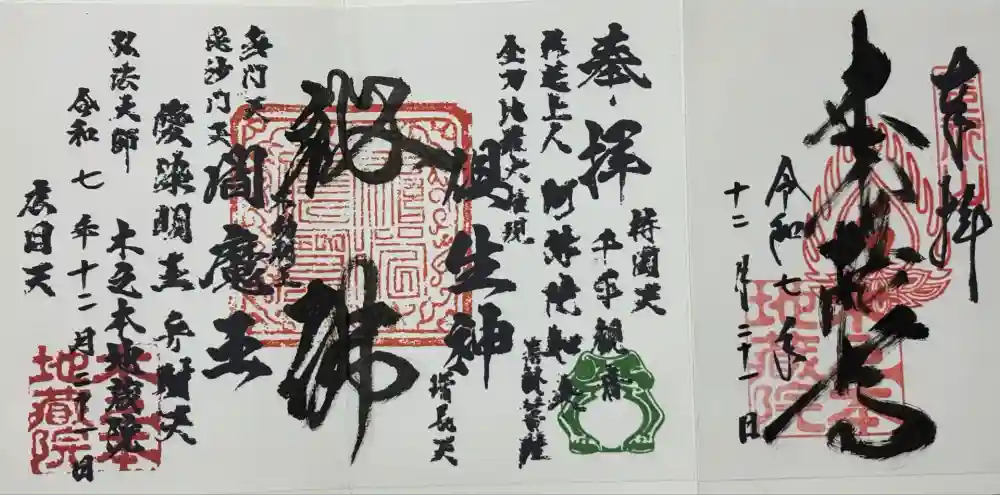 奉拝
本尊地蔵尊
令和七年
十二月二十一日
木之本地蔵院
奉拝
持國天
千手觀音
善財菩薩
蓮上人
阿弥陀如來
金刀比羅大権現
増長天
倶生神
秘佛
閻魔王
多門天
毘沙門天
愛染明王
弁財天
弘法大師
木之本地蔵院
令和七年十二月二十一日
広目天
木之本
地蔵院